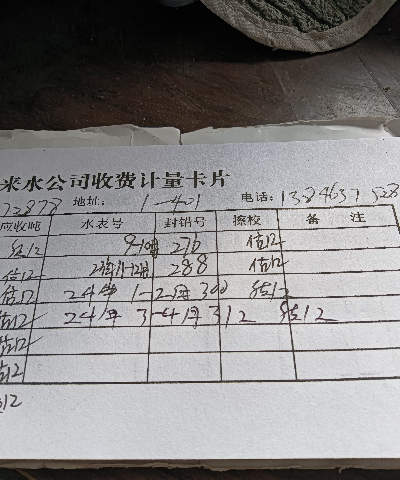 来水公司收费计量卡片
72878 地址: 1-401 电话: 13846371528
应收吨 水表号 封铅号 擦校 备 注
估12 9-10月 276 估12
估12 23年11-12月 288 估12
估12 24年1-2月 300 估12
估12 24年3-4月 312 估12
估12
估12
12